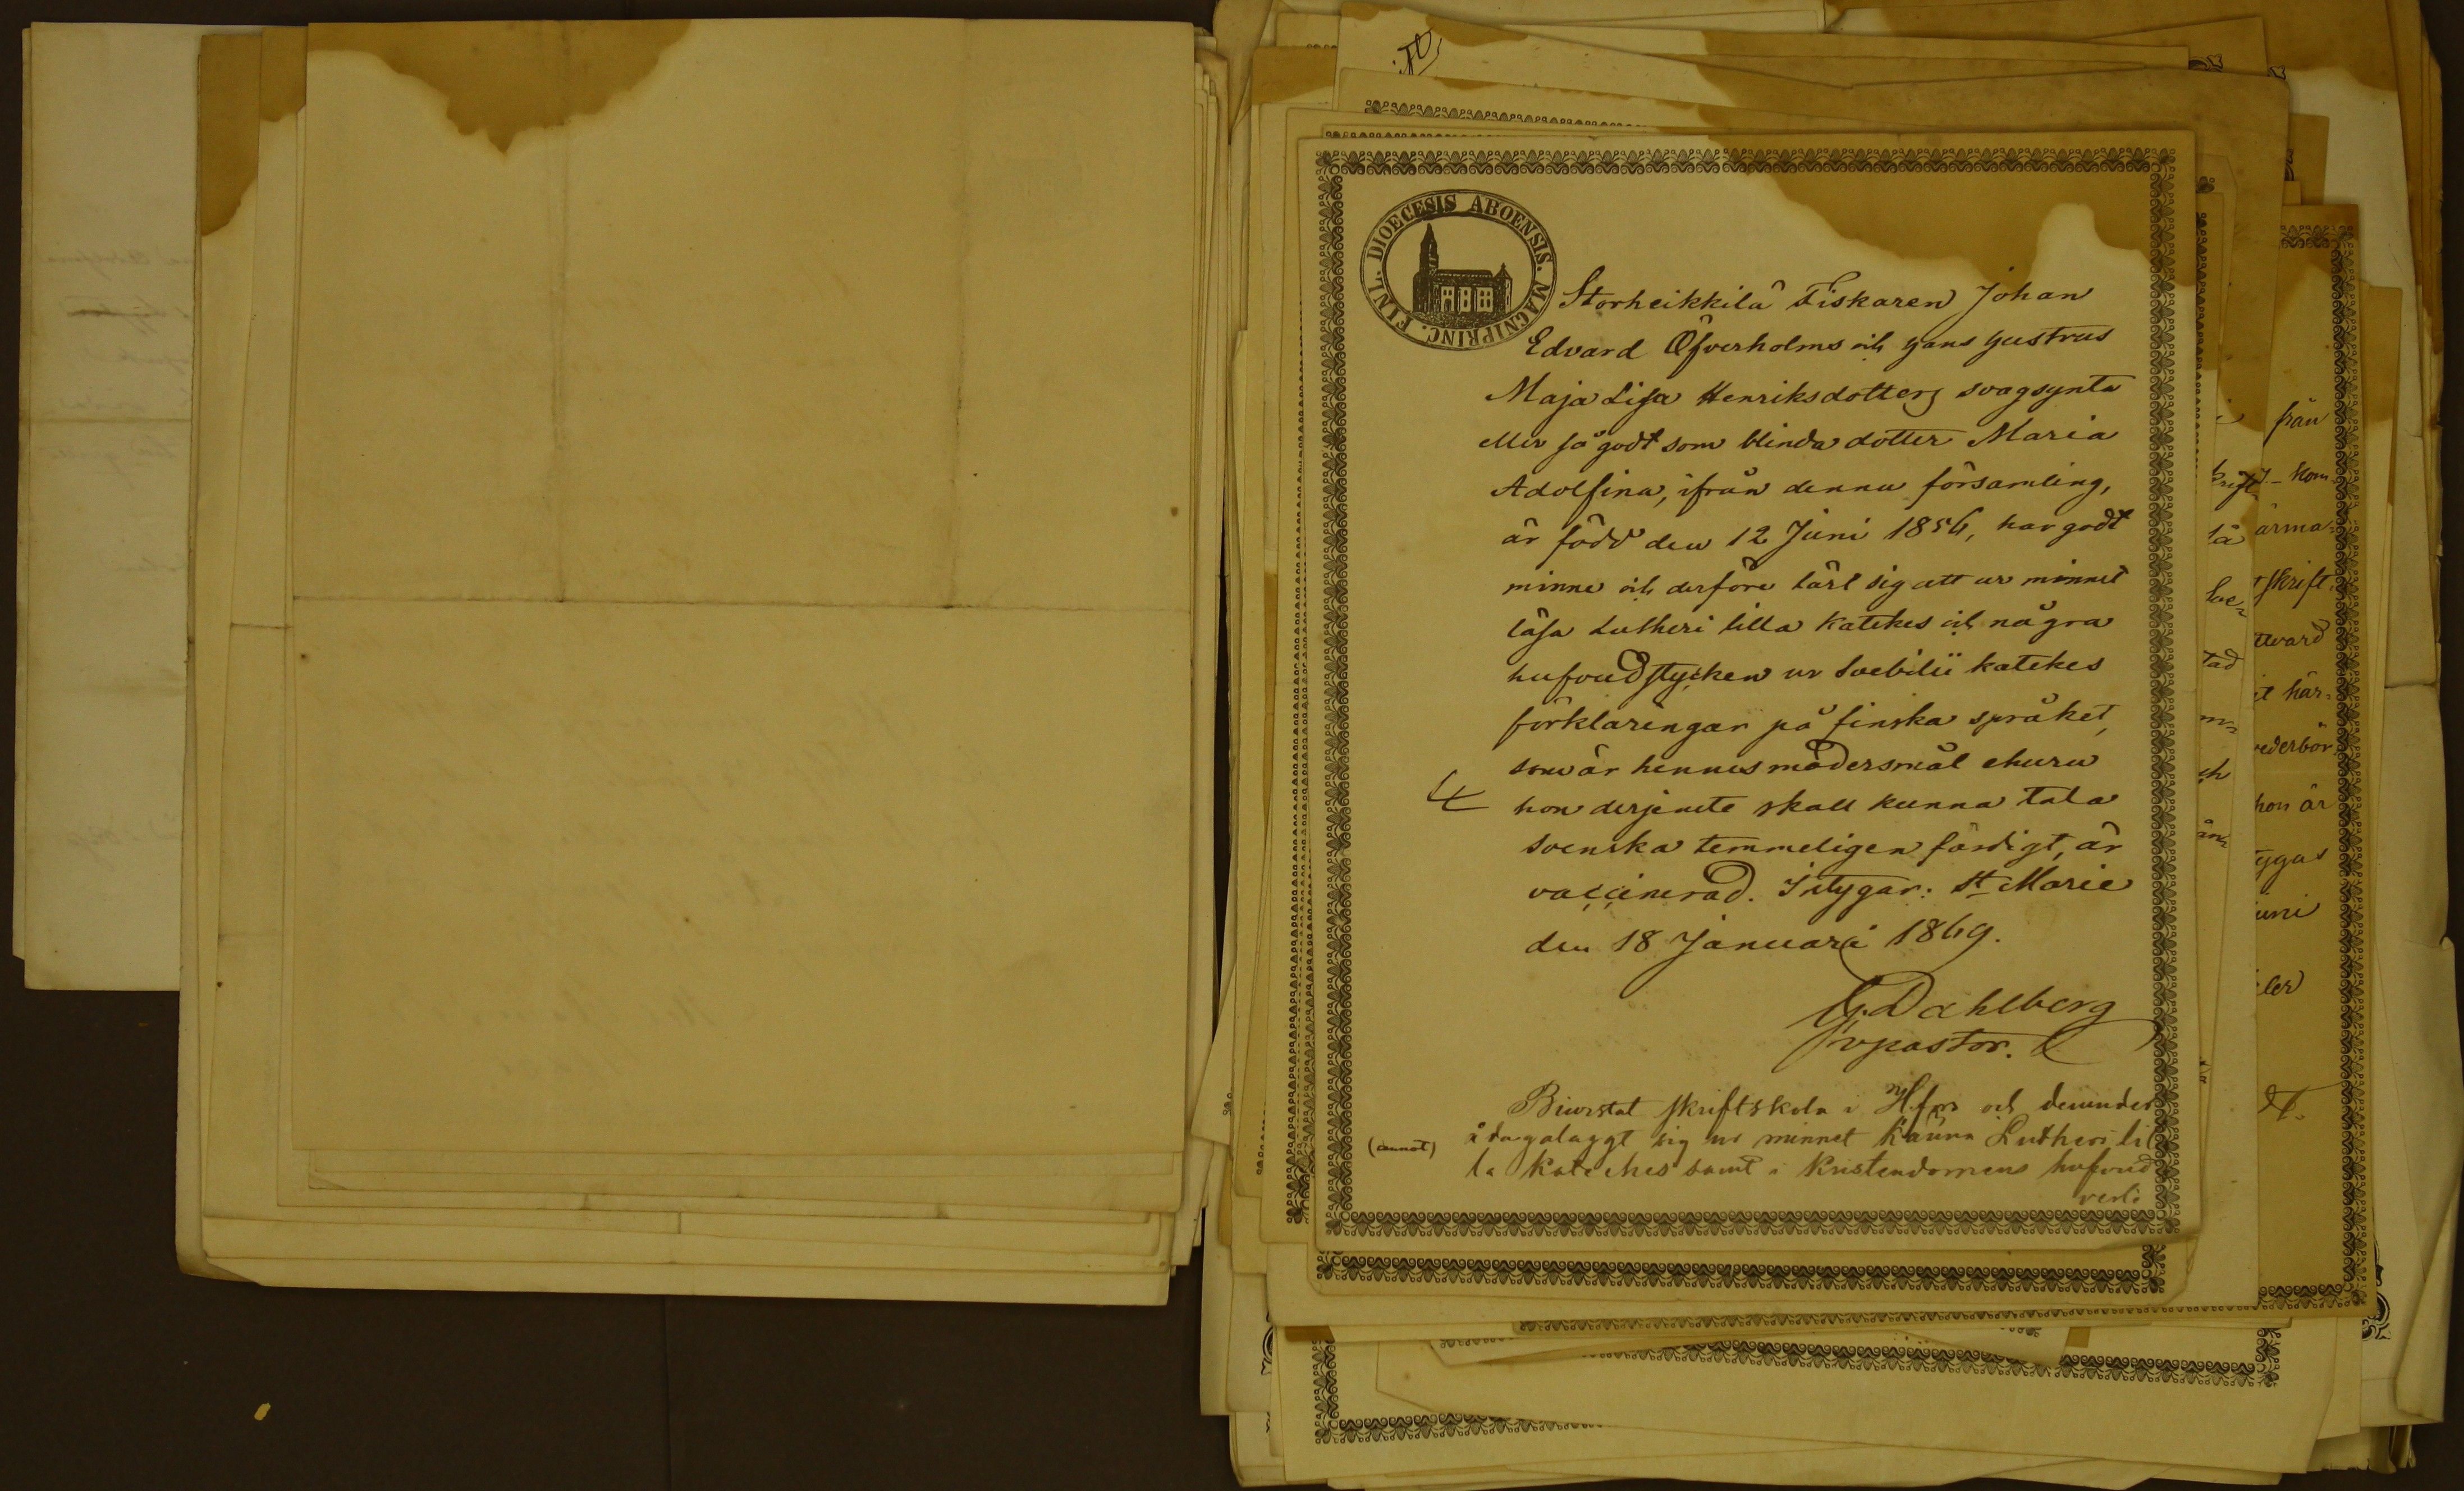 FINL. DIOECESIS ABOENSIS. MAGNIPRINC.
Storheikkilä Fiskaren Johan
Edvard Öfverholms och hans hustrus
Maja Lisa Henriksdotters svagsynta
eller så godt som blinda dotter Maria
Adolfina, ifrån denna församling,
är född den 12 Juni 1854, har godt
minne och derföre lärt sig att ur minnet
läsa Lutheri lilla katekes och några
hufvudstycken ur Svebilii katekes
förklaringar på finska språket,
som är hennes modersmål ehuru
hon derjemte skall kunna tala
svenska temmeligen färdigt, är
vaccinerad. Intygar: St Marie
den 18 Januari 1869.
G. Dahlberg
vpastor.
Bivistat skriftskola i H.fors och derunder
(annot) ådagalaggt sig ur minnet känna Lutheri lil
la kateches samt i kristendomens hufvud
verti
från
kom
ärma=
skrift
ttvard
it här=
vederbör
hon är
tygas
uni
ler